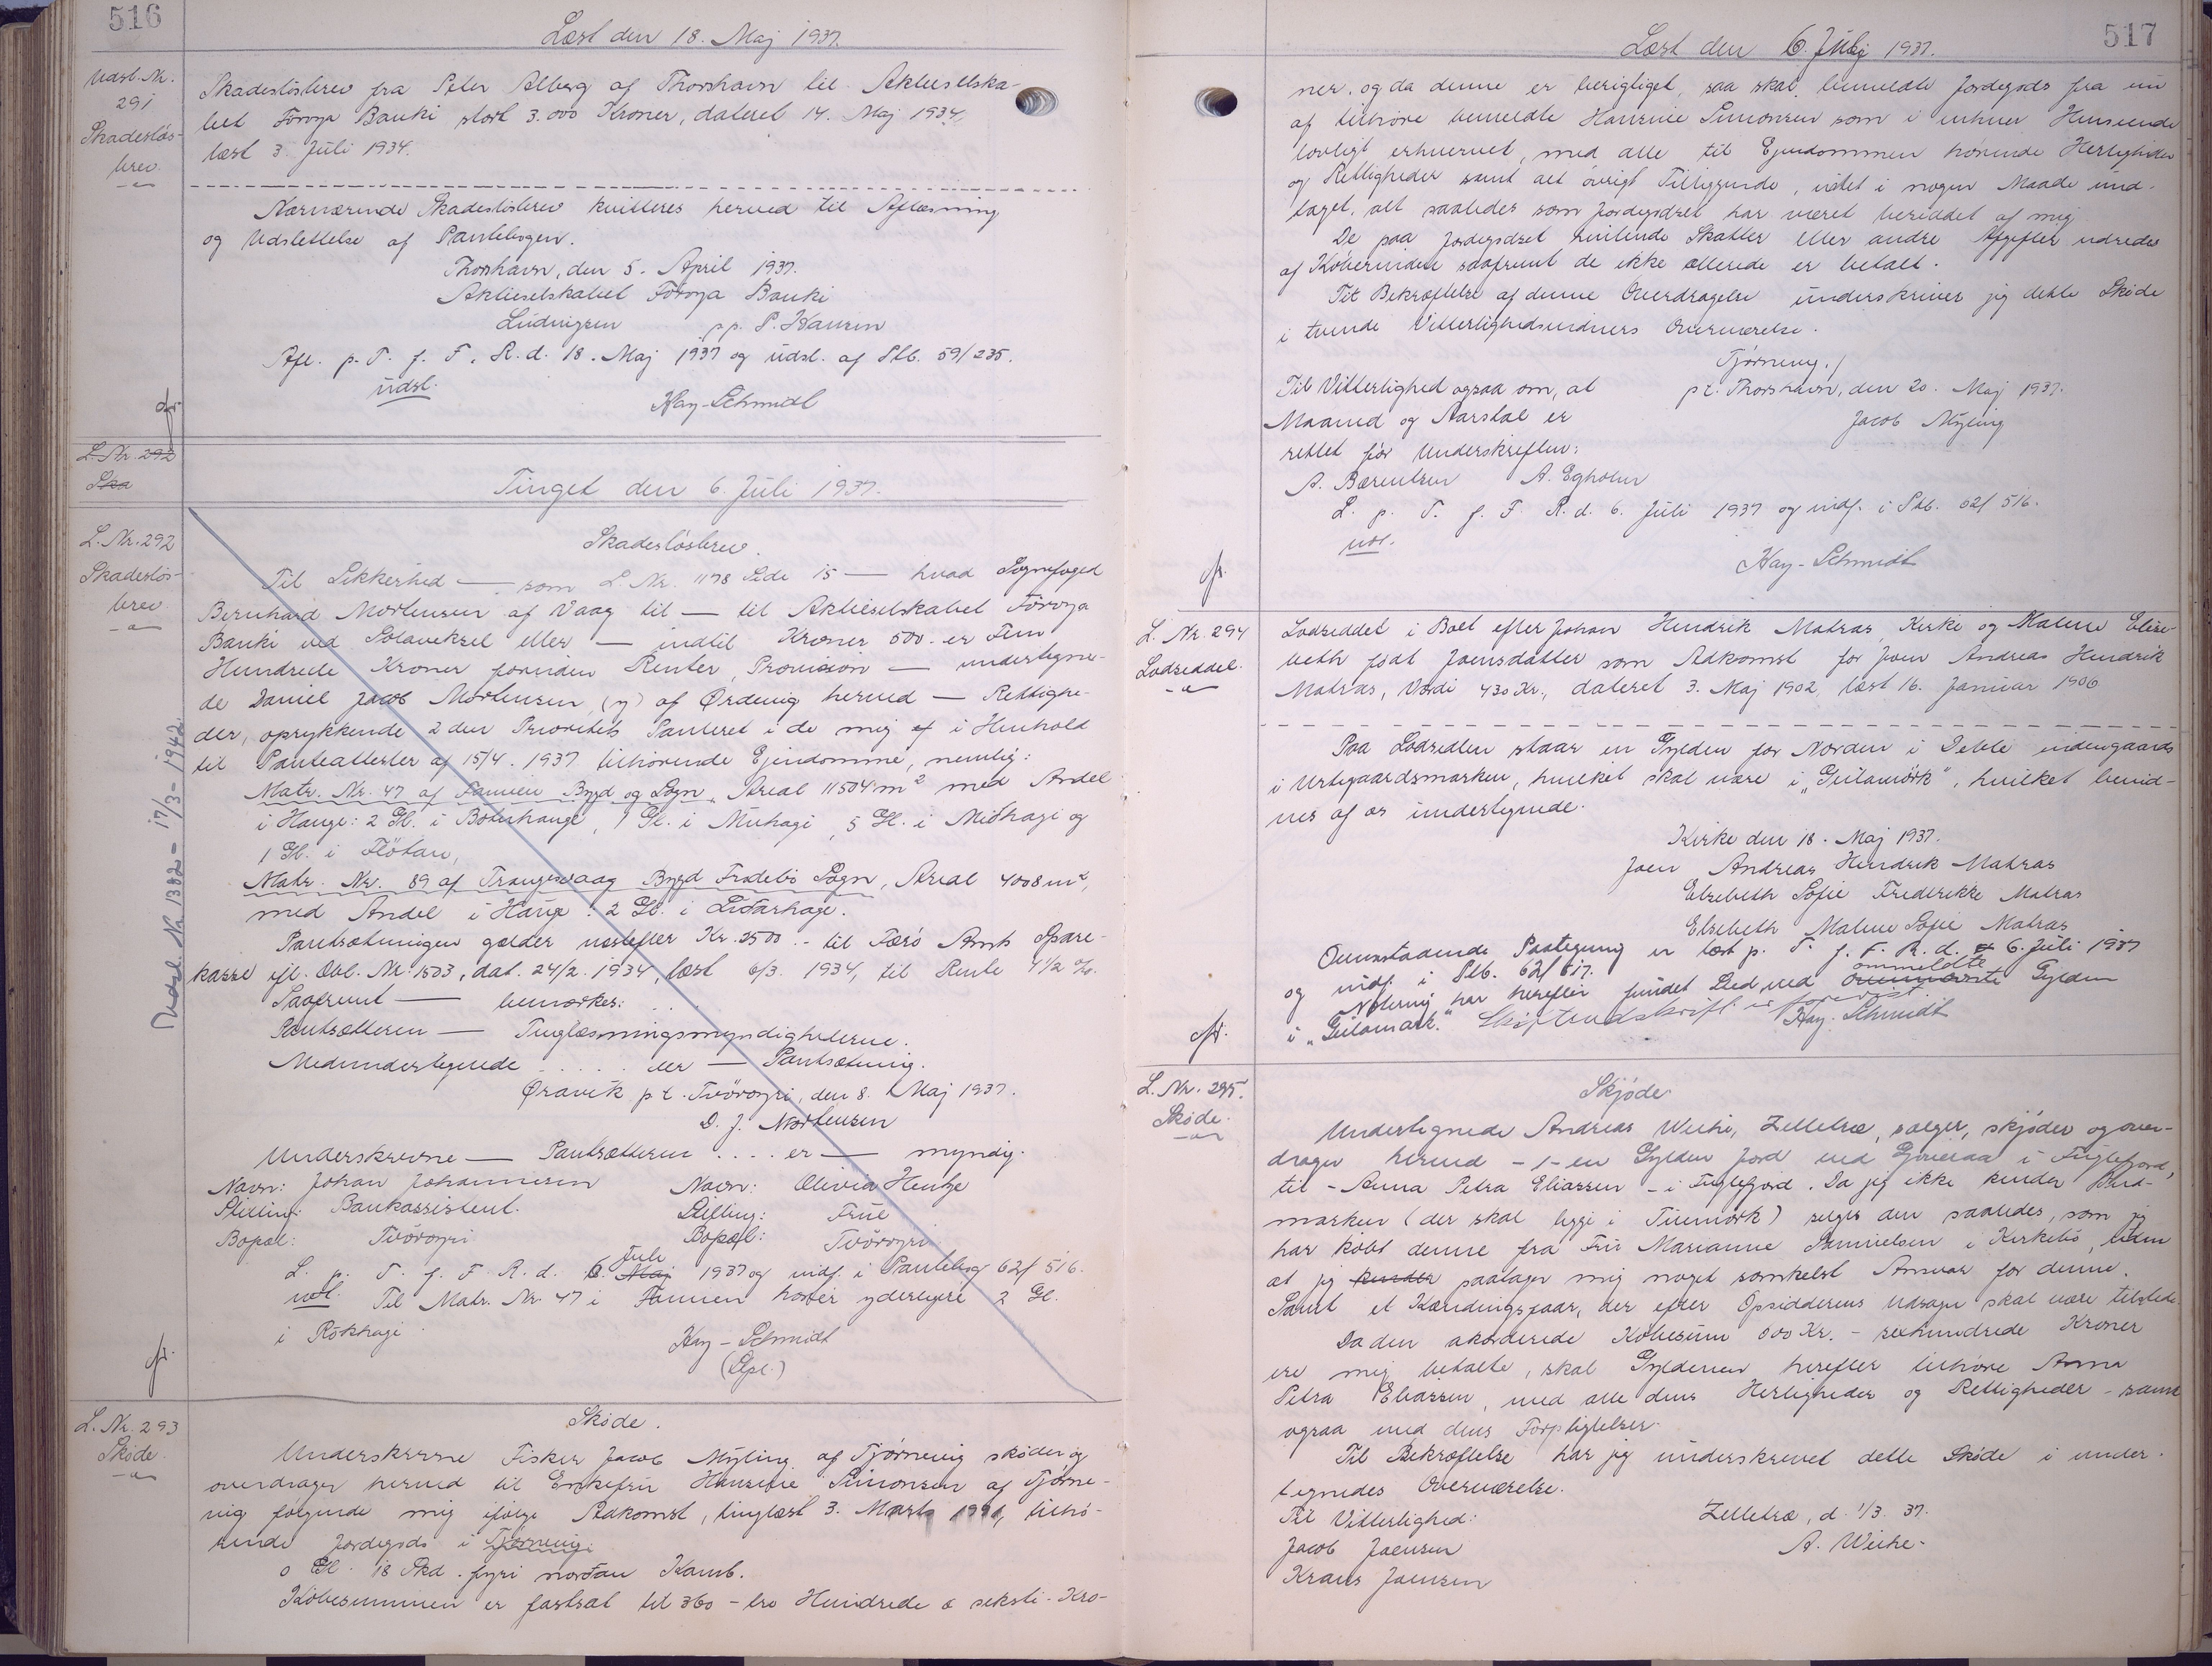 516
Læst den 18. Maj 1937.
Udsl. Nr.
291
Skadesløs-
brev.
Skadesløsbrev fra Peter Alberg af Thorshavn til Aktieselska-
bet Föroya Banki stort 3.000 Kroner, dateret 14. Maj 1934,
læst 3. Juli 1934.
Nærværende Skadesløsbrev kvitteres herved til Aflæsning
og Udslettelse af Pantebogen.
Thorshavn, den 5. April 1937.
Aktieselskabet Föroya Banki
Ludvigsen pp. P. Hansen
Afl. p. T. f. F. R. d. 18. Maj 1937 og udsl. af Ptb. 59/235.
udsl.
Kay-Schmidt
L. Nr. 292
Ska
Tinget den 6. Juli 1937.
L. Nr. 292
Skadesløs-
brev
Skadesløsbrev.
Til Sikkerhed — som L. Nr. 1178 Side 15 — hvad Sognefoged
Bernhard Mortensen af Vaag til — til Aktieselskabet Föroya
Banki ved Solaveksel eller — indtil Kroner 500.- er Fem
Hundrede Kroner foruden Renter, Provision — undertegne-
de Daniel Jacob Mortensen, (y) af Ørdevig herved — Rettighe-
der, oprykkende 2den Prioritets Panteret i de mig ef i Henhold
til Panteattester af 15/4. 1937 tilhørende Ejendomme, nemlig:
Matr. Nr. 47 af Famien Bygd og Sogn, Areal 11504 m² med Andel
i Hauge: 2 Gl. i Bøterhauge, 1 Gl. i Múhagi, 5 Gl. i Miðhagi og
1 Gl. i Fløtan,
Matr. Nr. 89 af Trangisvaag Bygd Frodebø Sogn, Areal 4008 m²,
med Andel i Hauge: 2 Gl. i Liðarhage.
Pantsætningen gælder næstefter Kr. 2500.- til Færø Amts Spare-
kasse ifl. Obl. Nr. 1503, dat. 24/2. 1934, læst 6/3. 1934, til Rente 4 1/2 %.
Saafremt — bemærkes:
Pantsætteren — Tinglæsningsmyndighederne.
Medundertegnede ..... der — Pantsætning.
Øravik p.t. Tvöroyri, den 8. Maj 1937.
D. J. Mortensen
Underskrevne — Pantsætteren .... er — myndig.
Navn: Johan Johannesen Navn: Olivia Hentze
Stilling: Bankassistent. Stilling: Frue
Bopæl: Tvöroyri Bopæl: Tvöroyri
Juli
L. p. T. f. F. R. d. 6. Maj 1937 og indf. i Pantebog 62/516.
udl. Til Matr. Nr. 47 i Famien hører yderligere 2 Gl.
i Rókhagi
Kay-Schmidt
(Spl.)
Udsl. Nr. 1382 - 17/3 - 1942.
L. Nr. 293
Skøde
Skøde.
Underskrevne Fisker Jacob Mýling af Tjørnevig skøder og
overdrager herved til Enkefru Hansine Simonsen af Tjørne-
vig følgende mig ifølge Adkomst, tinglæst 3. Marts tilhø-
rende Jordegods i Tjørnevig:
0 Gl. 18 Skd. fyri norðan Kamb.
Købesummen er fastsat til 360 - tre Hundrede o seksti - Kro-
517
Læst den 6. Juli 1937.
ner, og da denne er berigtiget, saa skal bemeldte Jordegods fra nu
af tilhøre bemeldte Hansine Simonsen som i enhver Henseende
lovligt erhvervet, med alle til Ejendommen hørende Herligheder
og Rettigheder samt alt øvrigt Tilliggende, intet i nogen Maade und-
taget, alt saaledes som Jordegodset har været besiddet af mig.
De paa Jordegodset hvilende Skatter eller andre Afgifter udredes
af Køberinden saafremt de ikke allerede er betalt.
Til Bekræftelse af denne Overdragelse underskriver jeg dette Skøde
i tvende Vitterlighedsvidners Overværelse.
Tjørnevig./
Til Vitterlighed ogsaa om, at pt. Thorshavn, den 20. Maj 1937.
Maaned og Aarstal er Jacob Mýling
rettet før Underskriften:
A. Bærentsen A. Egholm
L. p. T. f. F. R. d. 6. Juli 1937 og indf. i Ptb. 62/516.
udl.
Kay-Schmidt
L. Nr. 294
Lodseddel.
Lodseddel i Boet efter Johan Hendrik Matras, Kirke og Malene Elisa-
beth født Joensdatter som Adkomst for Joen Andreas Hendrik
Matras, Værdi 430 Kr., dateret 3. Maj 1902, læst 16. Januar 1906
Paa Lodsedlen staar en Gylden for Norden i Dehli indengaards
i Urtegaardsmarken, hvilket skal være i "Gulamørk", hvilket bevid-
nes af os undertegnede.
Kirke den 18. Maj 1937.
Joen Andreas Hendrik Matras
Elsebeth Sofie Frederikke Matras
Elsebeth Malene Sofie Matras
Ovenstaaende Paategning er læst p. T. f. F. R. d. 6. Juli 1937
og indf. i Ptb. 62/517.
ommeldte
Notering har herefter fundet Sted ved ovennævnte Gylden
i "Gulamørk." Skifteudskrift er forevist
Kay-Schmidt
L. Nr. 295.
Skøde.
Skjøde
Undertegnede Andreas Weihe, Selletræ, sælger, skjøder og over-
drager herved - 1 - en Gylden Jord ved Gjoveraa i Fuglefjord,
til - Anna Petra Eliassen - i Fuglefjord. Da jeg ikke kender
marken (der skal ligge i Túnmørk) sælges den saaledes, som jeg
har købt denne fra Fru Marianne Samuelsen i Kirkebø, uden
at jeg kender paatager mig noget somhelst Ansvar for denne.
Samt et Kændingsfaar, der efter Opsidderens Udsagn skal være tilstede.
Da den akorderede Købesum 600 Kr. - sexhundrede Kroner
ere mig betalte, skal Gyldenen herefter tilhøre Anna
Petra Eliassen, med alle dens Herligheder og Rettigheder - samt
ogsaa med dens Forpligtelser.
Til Bekræftelse har jeg underskrevet dette Skøde i under-
tegnedes Overværelse.
Til Vitterlighed: Selletræ, d. 1/3. 37.
Jacob Joensen A. Weihe.
Joensen